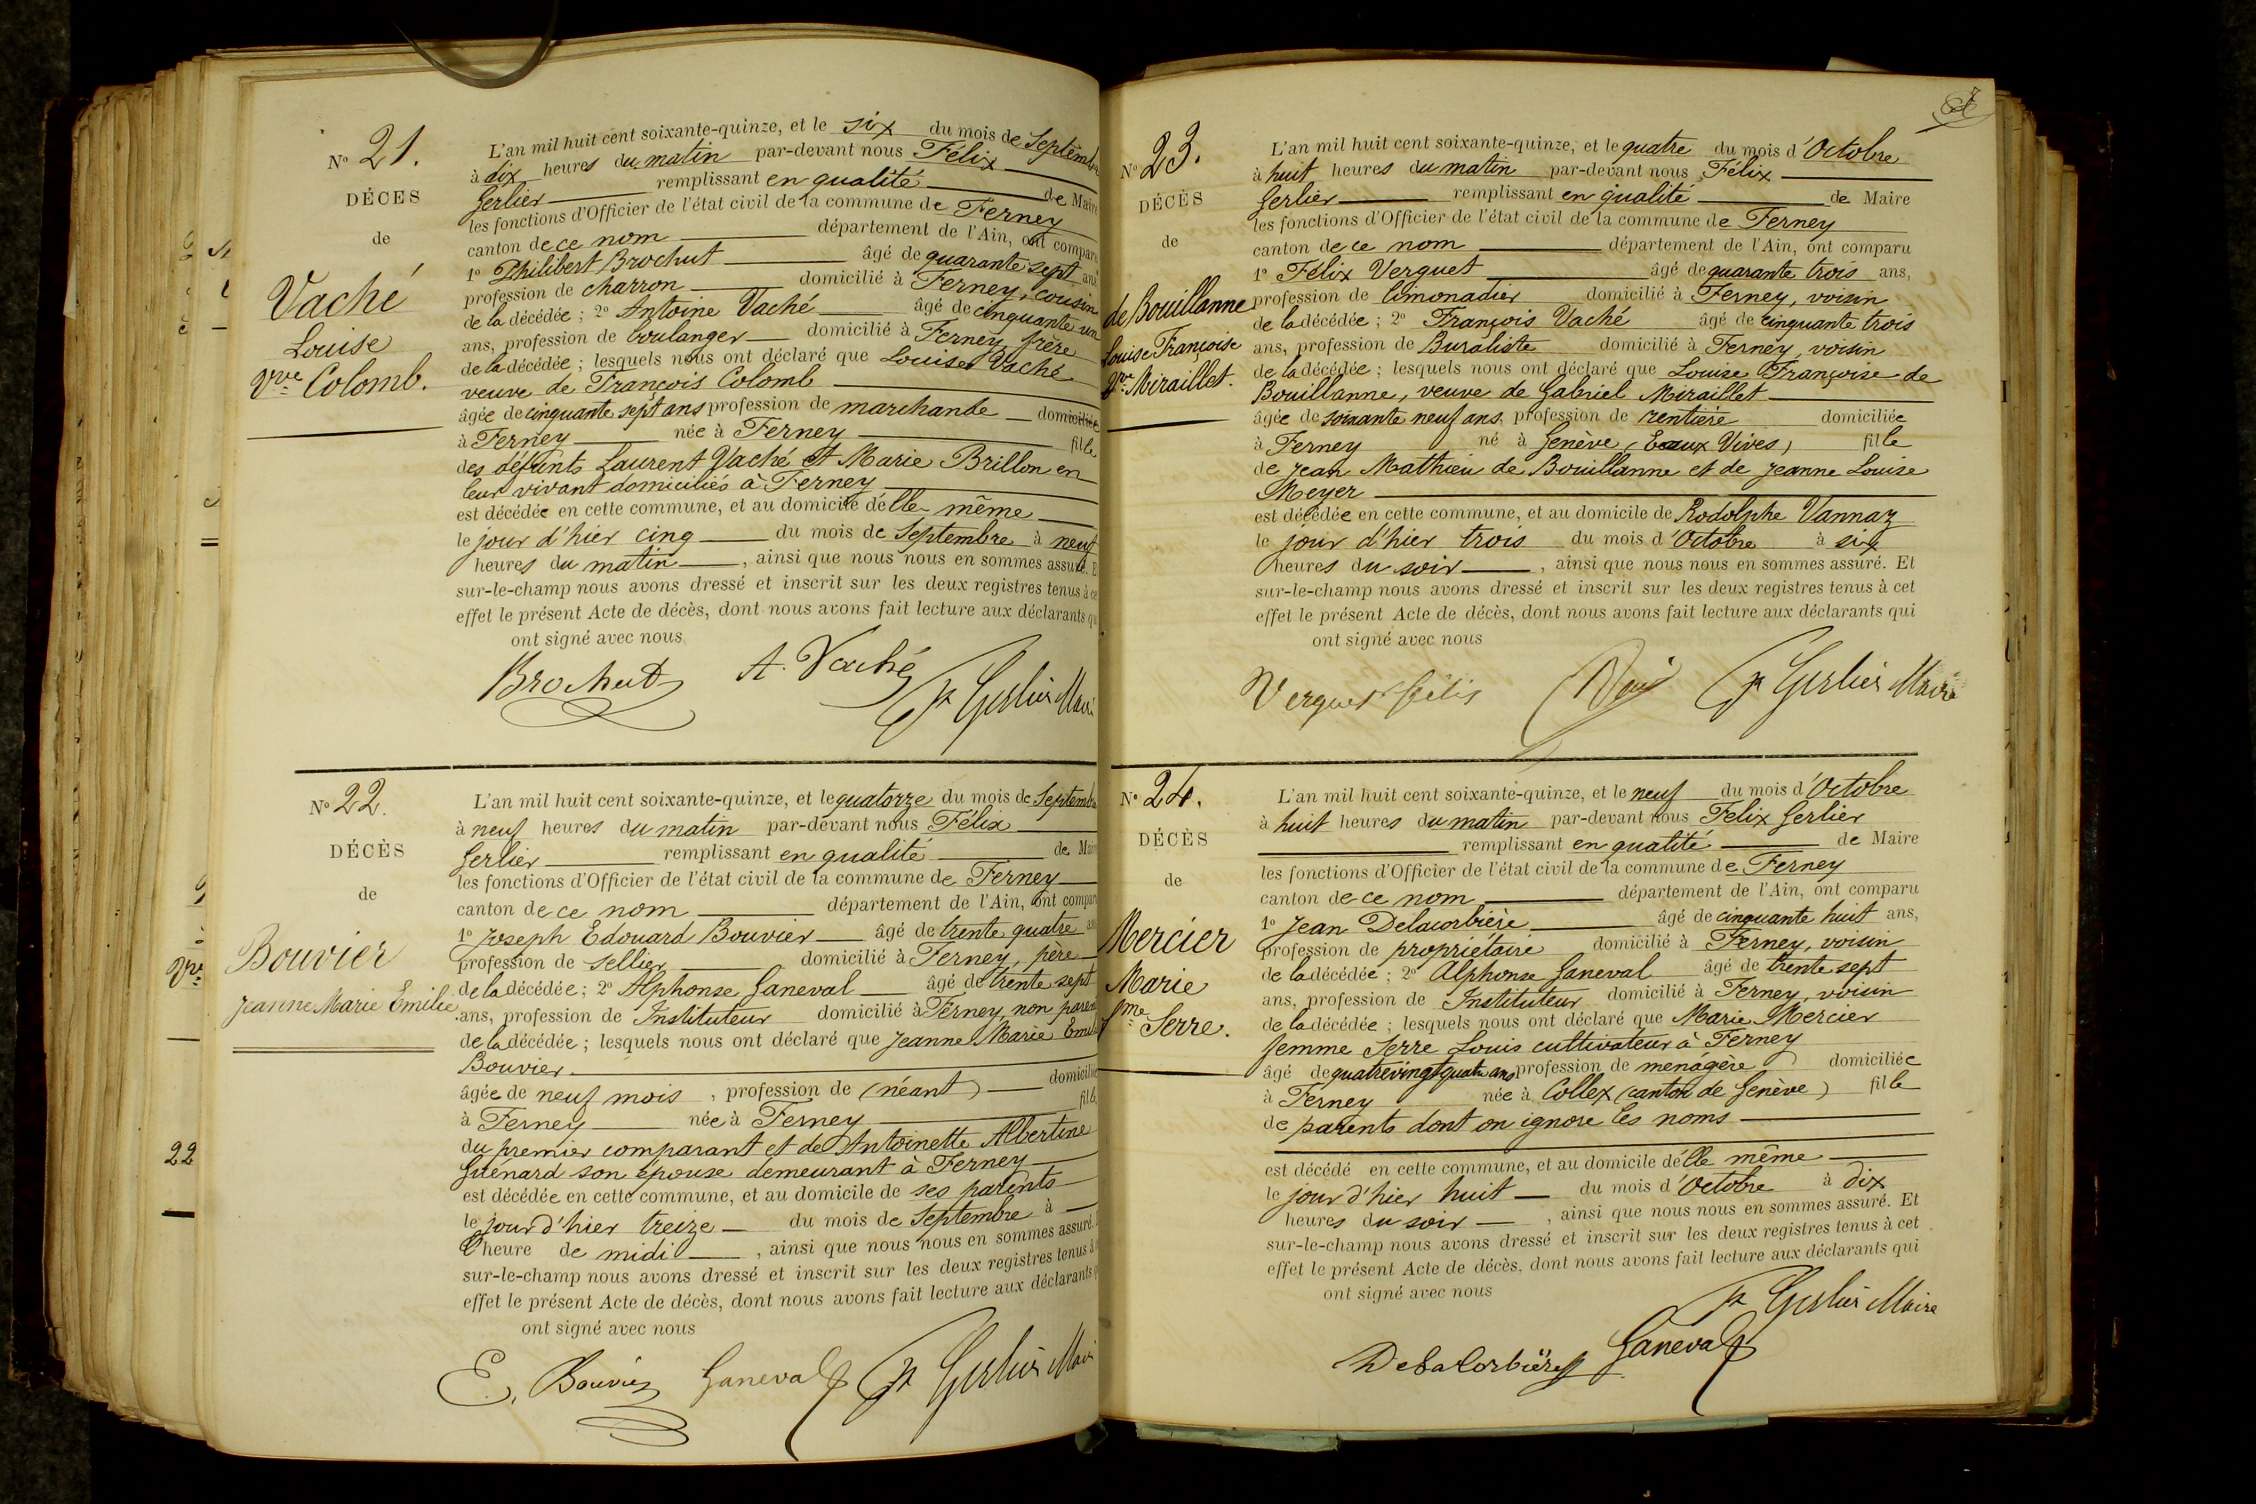 Nº 21.
DÉCES
de
Vaché
Louise
Vve Colomb.
L'an mil huit cent soixante-quinze, et le six du mois de Septembre
à dix heures du matin par-devant nous Félix
Gerlier remplissant en qualité de Maire
les fonctions d'Officier de l'état civil de la commune de Ferney
canton de ce nom département de l'Ain, ont comparu
1º Philibert Brochut âgé de quarante sept ans,
profession de charron domicilié à Ferney, cousin
de la décédée ; 2º Antoine Vaché âgé de cinquante un
ans, profession de boulanger domicilié à Ferney, frère
de la décédée ; lesquels nous ont déclaré que Louise Vaché
veuve de François Colomb
âgée de cinquante sept ans profession de marchande domiciliée
à Ferney née à Ferney fille
des défunts Laurent Vaché et Marie Brillon en
leur vivant domiciliés à Ferney
est décédée en cette commune, et au domicile d'elle même
le jour d'hier cinq du mois de Septembre à neuf
heures du matin , ainsi que nous nous en sommes assuré. E
sur-le-champ nous avons dressé et inscrit sur les deux registres tenus à ce
effet le présent Acte de décès, dont nous avons fait lecture aux déclarants qu
ont signé avec nous
Brochut A. Vaché Gerlier Maire
Nº 22.
DÉCÈS
de
Bouvier
Jeanne Marie Emilie.
L'an mil huit cent soixante-quinze, et le quatorze du mois de Septembre
à neuf heures du matin par-devant nous Félix
Gerlier remplissant en qualité de Maire
les fonctions d'Officier de l'état civil de la commune de Ferney
canton de ce nom département de l'Ain, ont comparu
1º Joseph Edouard Bouvier âgé de trente quatre ans
profession de Sellier domicilié à Ferney, père
de la décédée ; 2º Alphonse Ganeval âgé de trente sept
ans, profession de Instituteur domicilié à Ferney, non parent
de la décédée ; lesquels nous ont déclaré que Jeanne Marie Emilie
Bouvier
âgée de neuf mois , profession de (néant) domiciliée
à Ferney née à Ferney fille
du premier comparant et de Antoinette Albertine
Guénard son épouse demeurant à Ferney
est décédée en cette commune, et au domicile de ses parents
le jour d'hier treize du mois de Septembre à
l'heure de midi , ainsi que nous nous en sommes assuré.
sur-le-champ nous avons dressé et inscrit sur les deux registres tenus à
effet le présent Acte de décès, dont nous avons fait lecture aux déclarants q
ont signé avec nous
E. Bouvier Ganeval Gerlier Maire
Nº 23.
DÉCÈS
de
de Bouillanne
Louise Françoise
Vve Miraillet.
L'an mil huit cent soixante-quinze, et le quatre du mois d'Octobre
à huit heures du matin par-devant nous Félix
Gerlier remplissant en qualité de Maire
les fonctions d'Officier de l'état civil de la commune de Ferney
canton de ce nom département de l'Ain, ont comparu
1º Félix Verguet âgé de quarante trois ans,
profession de limonadier domicilié à Ferney, voisin
de la décédée ; 2º François Vaché âgé de cinquante trois
ans, profession de Buraliste domicilié à Ferney, voisin
de la décédée ; lesquels nous ont déclaré que Louise Françoise de
Bouillanne, veuve de Gabriel Miraillet
âgée de soixante neuf ans, profession de rentière domiciliée
à Ferney né à Genève (Eaux Vives) fille
de Jean Mathieu de Bouillanne et de Jeanne Louise
Meyer
est décédée en cette commune, et au domicile de Rodolphe Vannaz
le jour d'hier trois du mois d'Octobre à six
heures du soir , ainsi que nous nous en sommes assuré. Et
sur-le-champ nous avons dressé et inscrit sur les deux registres tenus à cet
effet le présent Acte de décès, dont nous avons fait lecture aux déclarants qui
ont signé avec nous
Verguet félix Gerlier Maire
Nº 24.
DÉCÈS
de
Mercier
Marie
fme Serre.
L'an mil huit cent soixante-quinze, et le neuf du mois d'Octobre
à huit heures du matin par-devant nous Felix Gerlier
remplissant en qualité de Maire
les fonctions d'Officier de l'état civil de la commune de Ferney
canton de ce nom département de l'Ain, ont comparu
1º Jean Delacorbière âgé de cinquante huit ans,
profession de propriétaire domicilié à Ferney, voisin
de la décédée ; 2º Alphonse Ganeval âgé de trente sept
ans, profession de Instituteur domicilié à Ferney, voisin
de la décédée ; lesquels nous ont déclaré que Marie Mercier
femme Serre Louis cultivateur à Ferney
âgé de quatrevingt quatre ans profession de menágère domiciliée
à Ferney née à Collex (canton de Genève) fille
de parents dont on ignore les noms
est décédé en cette commune, et au domicile d'elle même
le jour d'hier huit du mois d'Octobre à dix
heures du soir , ainsi que nous nous en sommes assuré. Et
sur-le-champ nous avons dressé et inscrit sur les deux registres tenus à cet
effet le présent Acte de décès, dont nous avons fait lecture aux déclarants qui
ont signé avec nous
Gerlier Maire
Delacorbière Ganeval